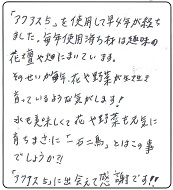 「アクアス5」を使用して早4年が経ち
ました。毎年使用済み材は趣味の
花壇や畑にまいています。
そのせいか毎年、花や野菜が生き生きと
育っているような気がします！
水も美味しくて花や野菜も元気に
育ちまさに「一石二鳥」とはこの事
でしょうか?!
「アクアス5」に出会えて感謝です!!